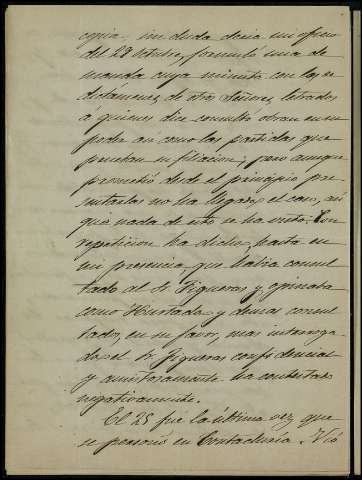 copia, sin duda decia mi oficio
del 28 octubre, formuló una de
manda cuya minuta con los
dictámenes de otros Señores letrados
á quienes dice consultó obran en su
poder asi como las partidas que
prueban su filiacion; pero aunque
prometió desde el principio pre
sentarlas no ha llegado el caso, asi
que nada de esto se ha visto. Con
repeticion ha dicho, hasta en
mi presencia, que habia consul
tado al Sr Figueras y opinaba
como Hurtado y demas consul
tados, en su favor, mas interroga
do el Sr Figueras confidencial
y amistosamente ha contestado
negativamente.
El 25 fué la última vez que
se personó en Contaduría. Vió